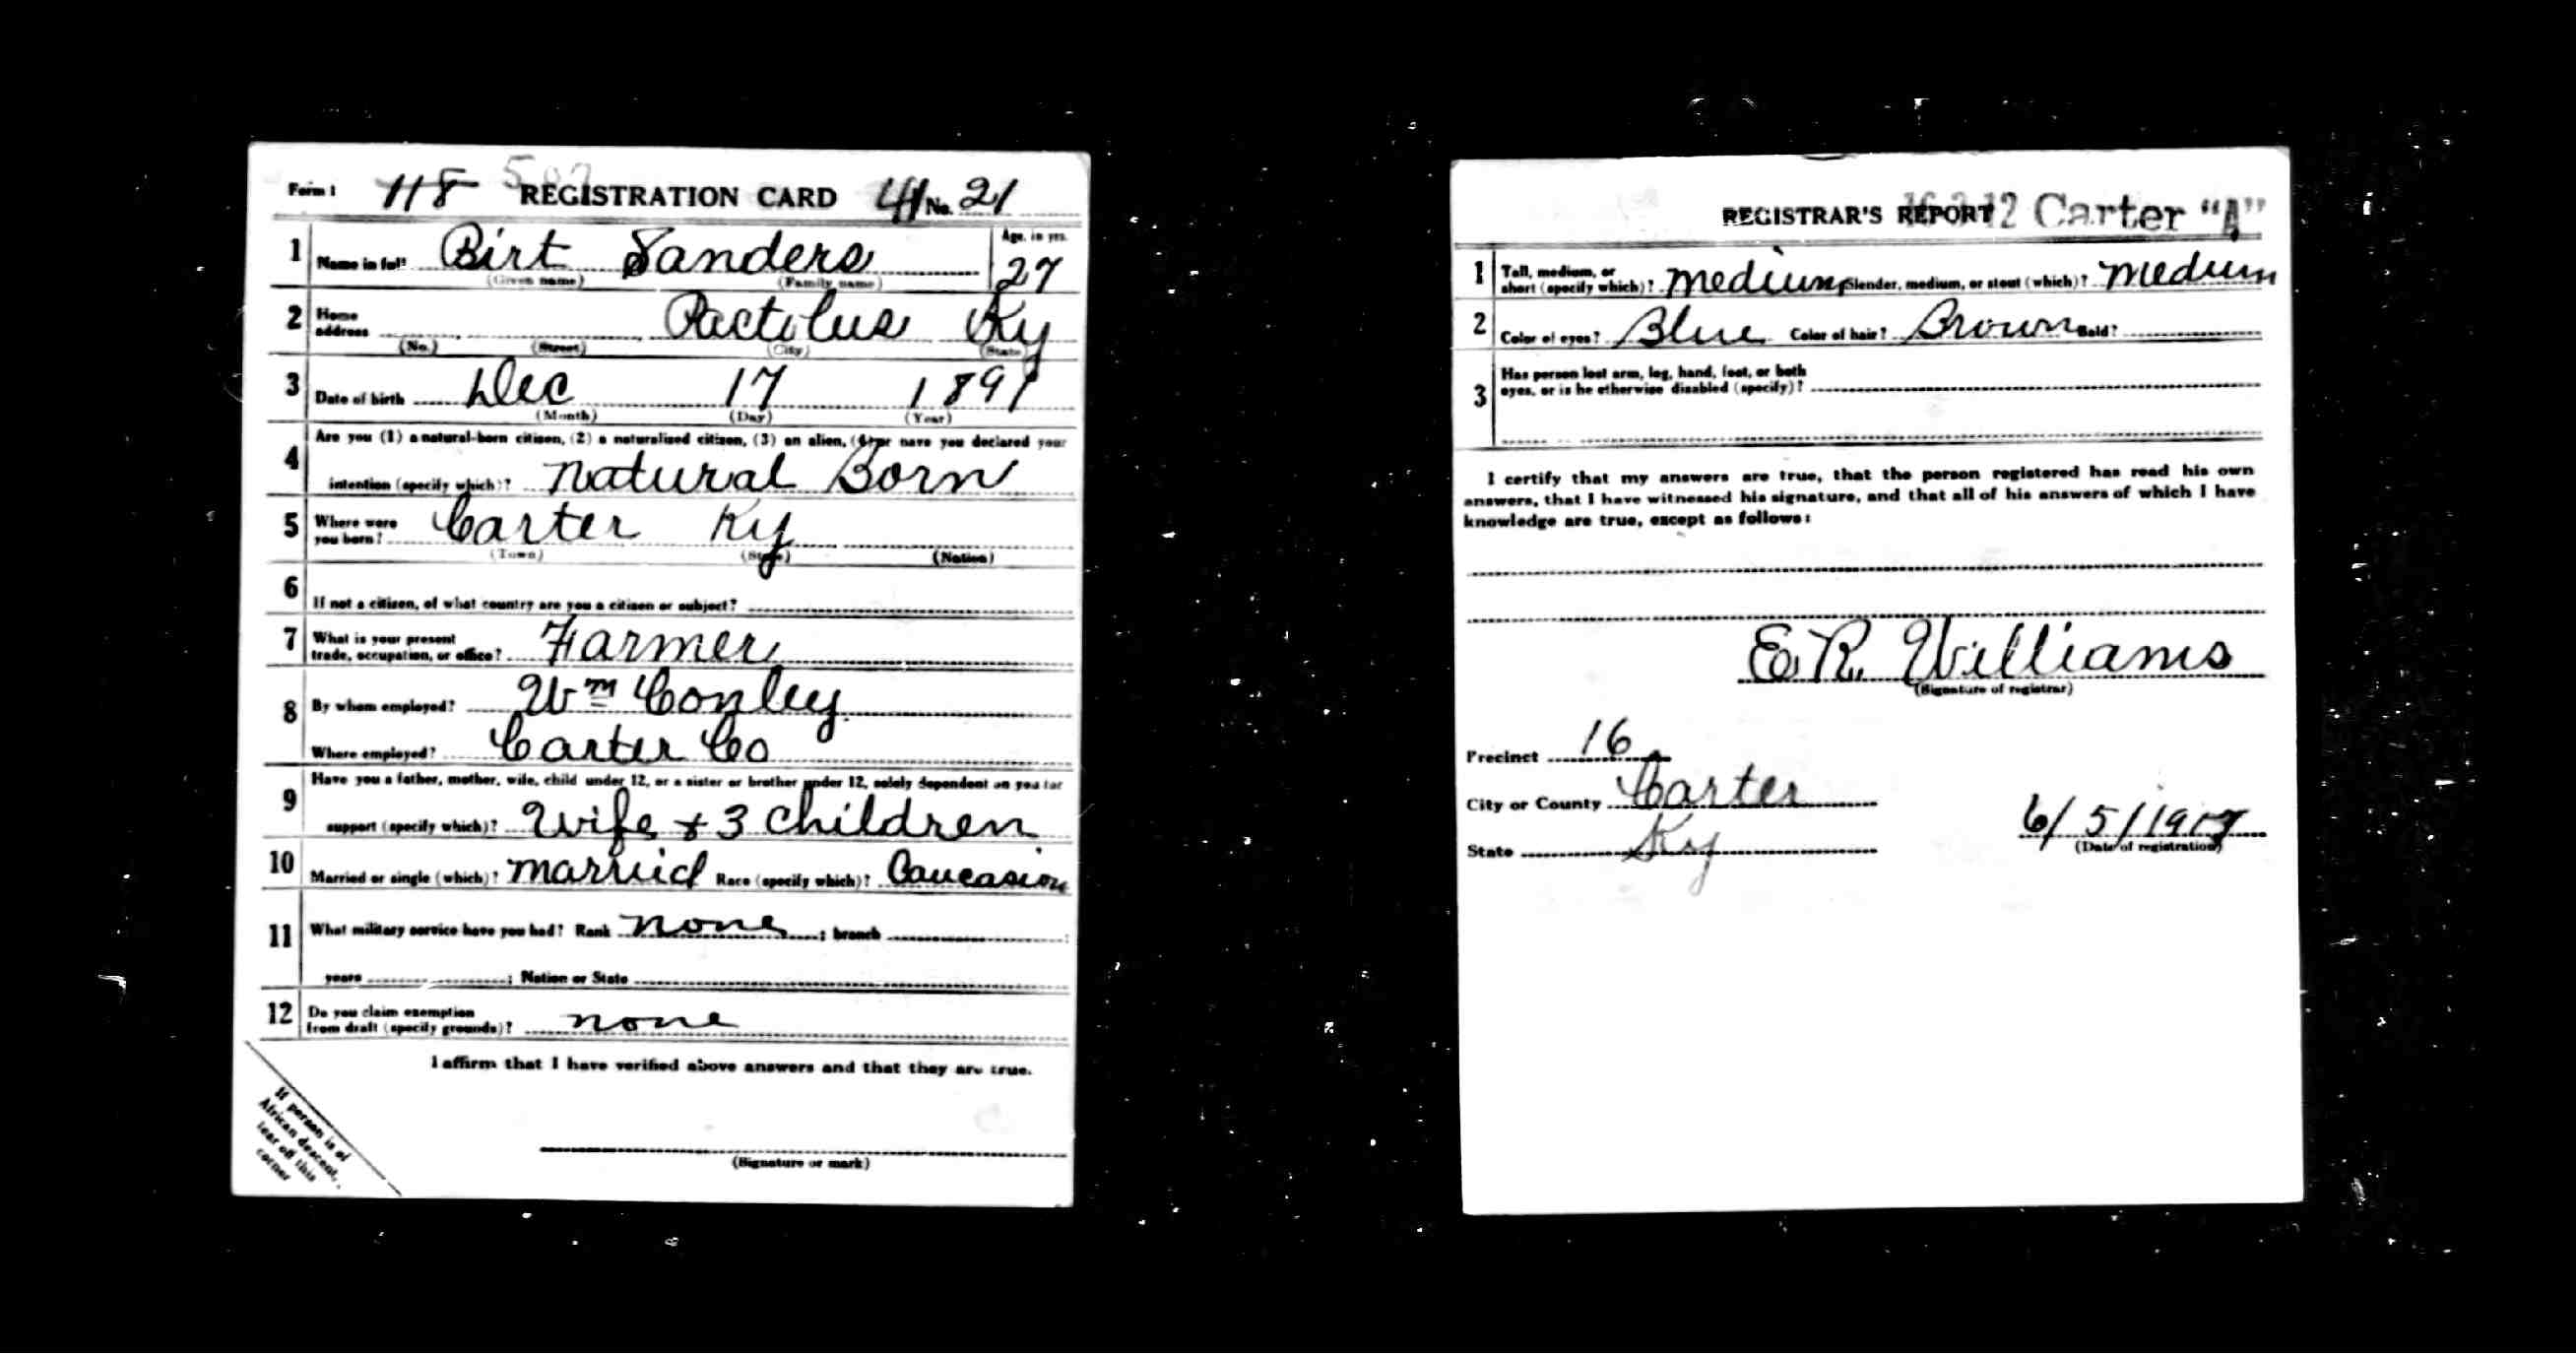 Form 1 118 REGISTRATION CARD 41 No. 21
1 Name in full Birt Sanders Age, in yrs. 27
(Given name) (Family name)
2 Home address Pactolus Ky
(No.) (Street) (City) (State)
3 Date of birth Dec 17 1891
(Month) (Day) (Year)
4 Are you (1) a natural-born citizen, (2) a naturalized citizen, (3) an alien, (4) or have you declared your
intention (specify which)? Natural Born
5 Where were you born? Carter Ky
(Town) (State) (Nation)
6 If not a citizen, of what country are you a citizen or subject?
7 What is your present trade, occupation, or office? Farmer
8 By whom employed? Wm Conley
Where employed? Carter Co
9 Have you a father, mother, wife, child under 12, or a sister or brother under 12, solely dependent on you for
support (specify which)? Wife + 3 children
10 Married or single (which)? married Race (specify which)? Caucasion
11 What military service have you had? Rank none ; branch ;
years ; Nation or State
12 Do you claim exemption from draft (specify grounds)? none
I affirm that I have verified above answers and that they are true.
(Signature or mark)
If person is of
African descent,
tear off this
corner
REGISTRAR'S REPORT Carter "A"
1 Tall, medium, or short (specify which)? medium Slender, medium, or stout (which)? medium
2 Color of eyes? Blue Color of hair? Brown Bald?
3 Has person lost arm, leg, hand, foot, or both
eyes, or is he otherwise disabled (specify)?
I certify that my answers are true, that the person registered has read his own
answers, that I have witnessed his signature, and that all of his answers of which I have
knowledge are true, except as follows:
E.R. Williams
(Signature of registrar)
Precinct 16
City or County Carter
State Ky
6/5/1917
(Date of registration)